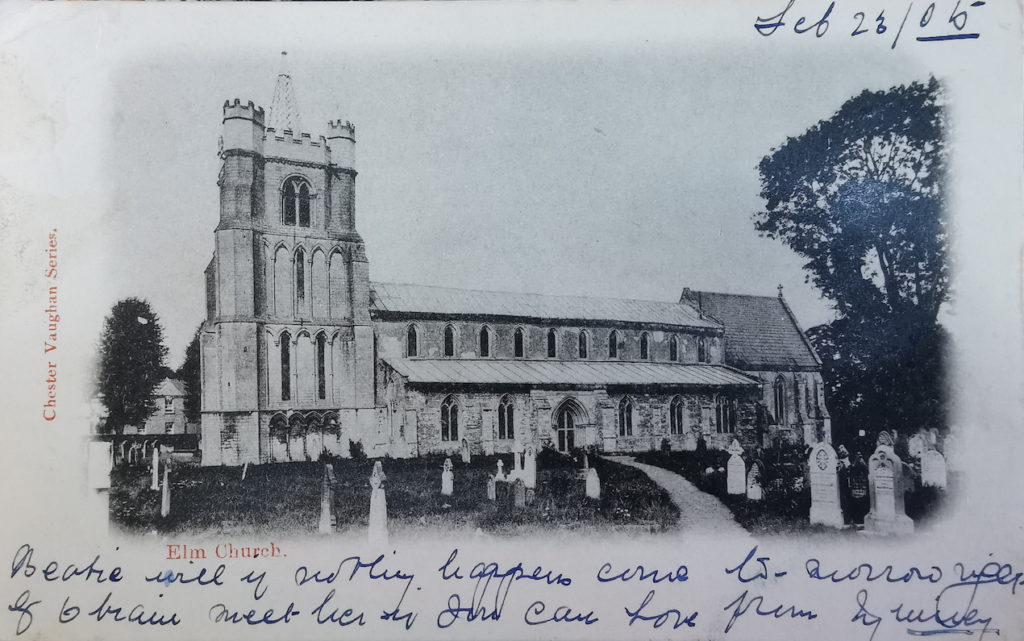 Feb 23/05
Chester Vaughan Series.
Elm Church.
Beatie will if nothing happens come to-morrow
6 meet her if you can Love from